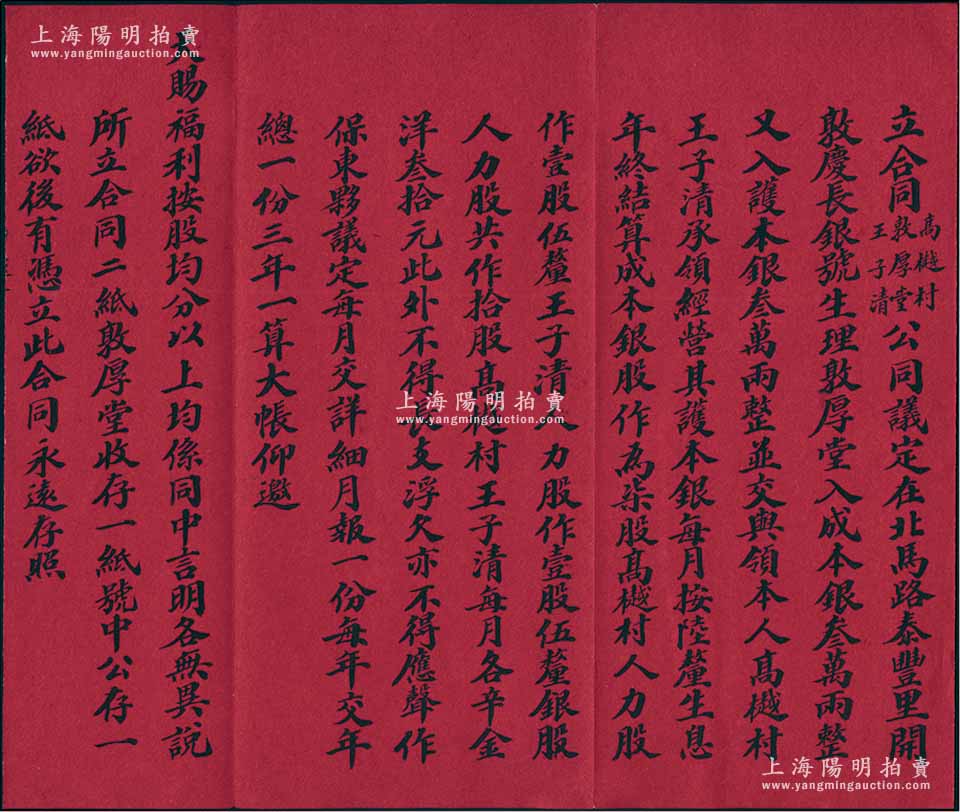 立合同高樾村敦厚堂王子清公同議定在北馬路泰豐里開
敦慶長銀號生理敦厚堂入成本銀叁萬兩整
又入護本銀叁萬兩整並交與領本人高樾村
王子清承領經營其護本銀每月按陸釐生息
年終結算成本銀股作為柒股高樾村人力股
作壹股伍釐王子清人力股作壹股伍釐銀股
人力股共作拾股高樾村王子清每月各辛金
洋叁拾元此外不得長支浮欠亦不得應聲作
保東夥議定每月交詳細月報一份每年交年
總一份三年一算大帳仰邀
天賜福利按股均分以上均係同中言明各無異說
所立合同二紙敦厚堂收存一紙號中公存一
紙欲後有憑立此合同永遠存照
上海陽明拍賣
www.yangmingauction.com
上海陽明拍賣
www.yangmingauction.com
上海陽明拍賣
www.yangmingauction.com